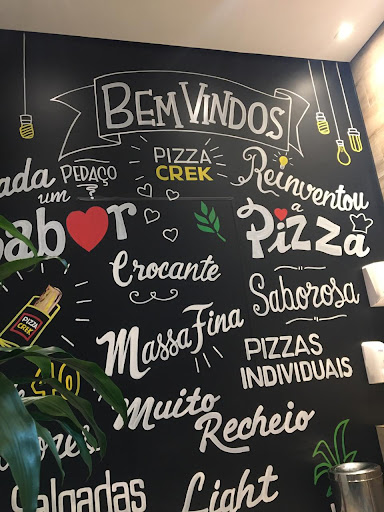 BEM VINDOS
PEDAÇO
um
PIZZA
CREK
Reinventou
a
Pizza
Crocante
Saborosa
PIZZA
CREK
Massa Fina
PIZZAS
INDIVIDUAIS
Muito
Recheio
Salgadas
Light